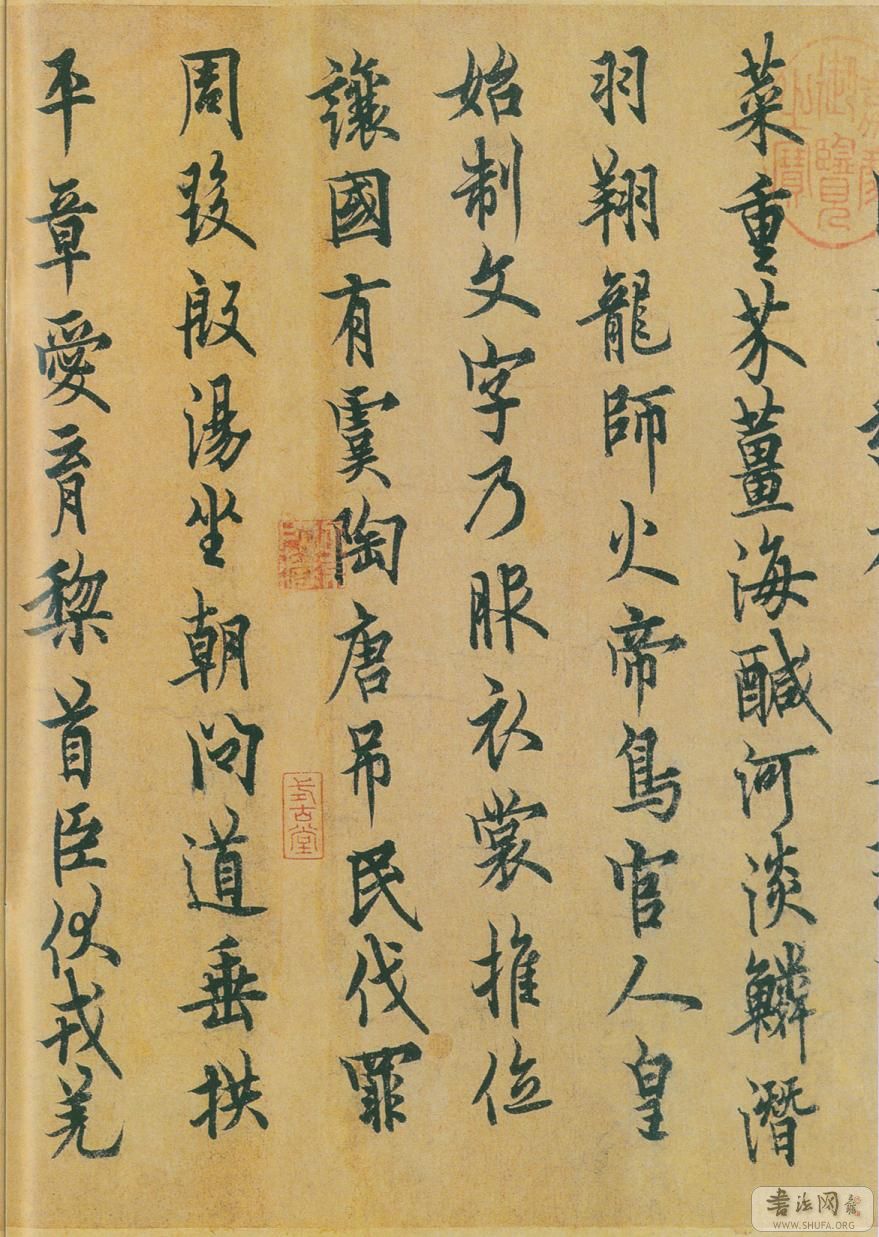 菜重芥薑海醎河淡鱗潛
羽翔龍師火帝鳥官人皇
始制文字乃服衣裳推位
讓國有虞陶唐吊民伐罪
周發殷湯坐朝問道垂拱
平章愛育黎首臣伏戎羌
御覽
式古堂
書法网
WWW.SHUFA.ORG